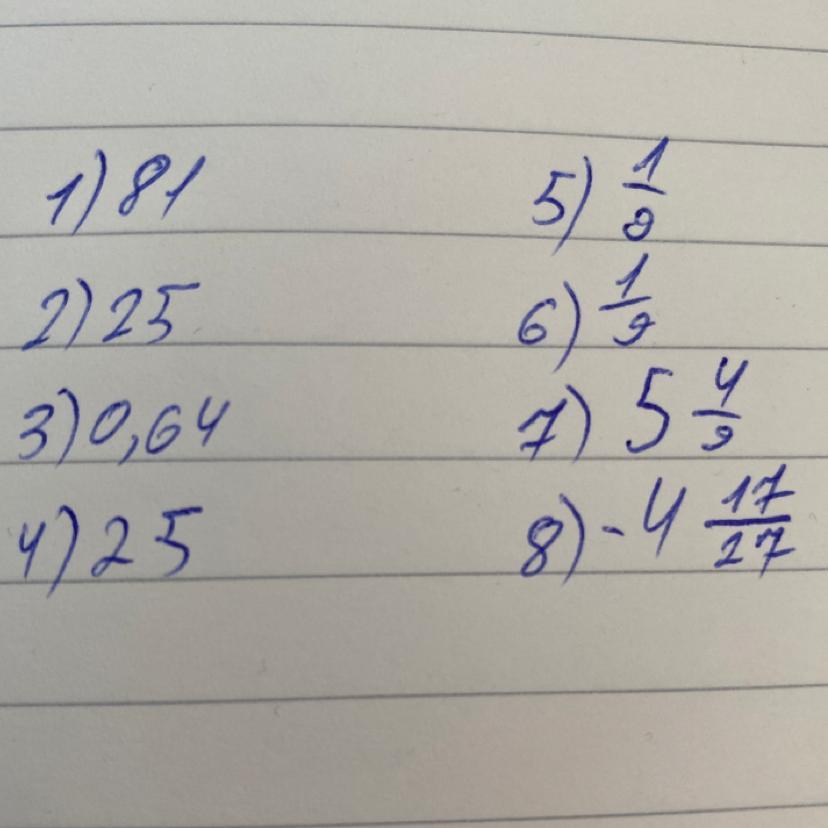 1) 81
2) 25
3) 0,64
4) 25
5) 1/9
6) 1/9
7) 5 4/9
8) -4 17/27